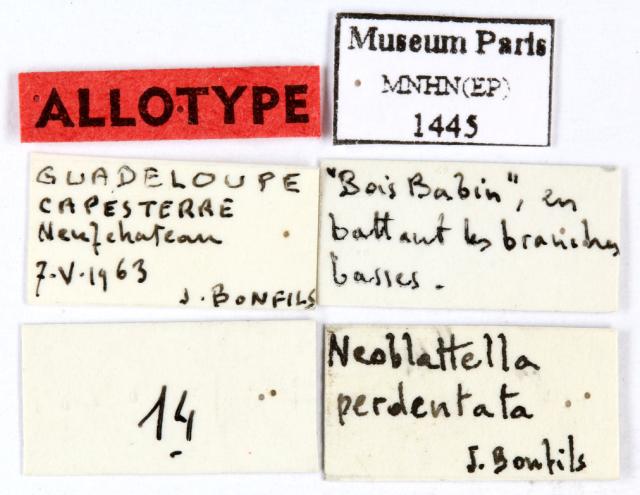 ALLOTYPE
Museum Paris
MNHN(EP)
1445
GUADELOUPE
CAPESTERRE
Neufchateau
7-V-1963
J. BONFILS
"Bois Babin", en
battant les branches
basses.
14
Neoblattella
perdentata
J. Bonfils